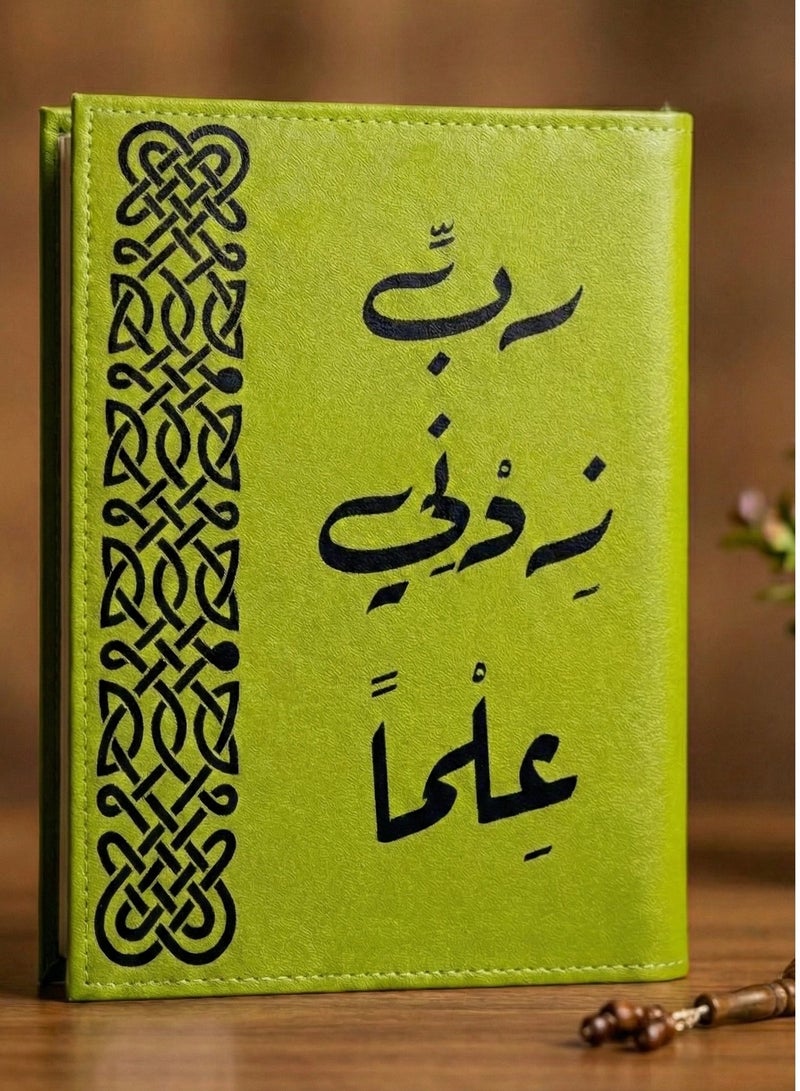 ربِّ
زِدْنِي
عِلْماً